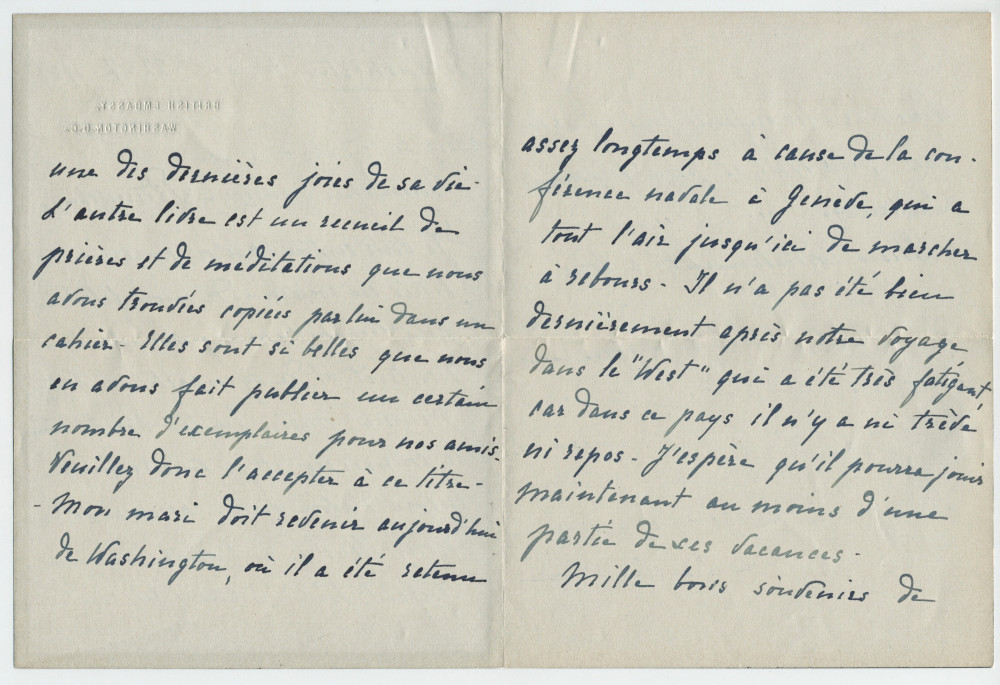 BRITISH EMBASSY,
WASHINGTON. D.C.
une des dernières joies de sa vie-
L'autre livre est un recueil de
prières et de méditations que nous
avons trouvées copiées par lui dans un
cahier- Elles sont si belles que nous
en avons fait publier un certain
nombre d'exemplaires pour nos amis-
Veuillez donc l'accepter à ce titre-
- Mon mari doit revenir aujourd'hui
de Washington, où il a été retenu
assez longtemps à cause de la con-
férence navale à Genève, qui a
tout l'air jusqu'ici de marcher
à rebours- Il n'a pas été bien
dernièrement après notre voyage
dans le "West" qui a été très fatigant,
car dans ce pays il n'y a ni trève
ni repos- J'espère qu'il pourra jouir
maintenant au moins d'une
partie de ses vacances-
Mille bons souvenirs de